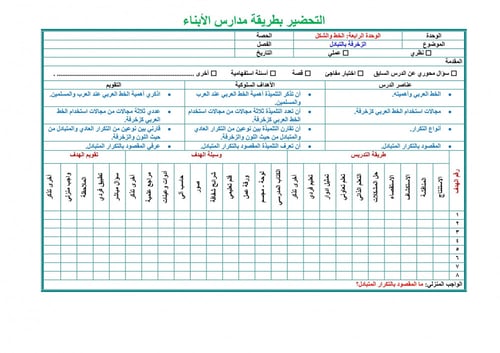 التحضير بطريقة مدارس الأبناء
الوحدة الوحدة الرابعة: الخط والشكل الحصة
الموضوع الزخرفة بالتبادل الفصل
نظري عملي التاريخ
المقدمة
سؤال محوري عن الدرس السابق اختبار مفاجئ قصة أسئلة استفهامية أخرى
عناصر الدرس الأهداف السلوكية التقويم
الخط العربي وأهميته. أن تذكر التلميذة أهمية الخط العربي عند العرب والمسلمين. اذكري أهمية الخط العربي عند العرب والمسلمين.
مجالات استخدام الخط العربي كزخرفة. أن تعدد التلميذة ثلاثة مجالات من مجالات استخدام الخط العربي كزخرفة. عددي ثلاثة مجالات من مجالات استخدام الخط العربي كزخرفة.
أنواع التكرار. أن تقارن التلميذة بين نوعين من التكرار العادي والمتبادل من حيث اللون والزخرفة. قارني بين نوعين من التكرار العادي والمتبادل من حيث اللون والزخرفة.
أن تعرف التلميذة المقصود بالتكرار المتبادل. عرفي المقصود بالتكرار المتبادل.
رقم الهدف طريقة التدريس وسيلة الهدف تقويم الهدف
الاستنتاج المناقشة الاستكشاف الاستقصاء حل المشكلات التعلم الذاتي تمثيل أدوار تعلم تعاوني تعليم فردي أخرى تذكر الكتاب المدرسي لوحة - مجسم ورقة عمل فلم تعليمي شرائح شفافة صور حاسب آلي أدوات وعينات مراجع علمية أخرى تذكر سؤال مباشر تطبيق فردي الملاحظة واجب منزلي أخرى تذكر
١
٢
٣
٤
٥
٦
٧
٨
الواجب المنزلي: ما المقصود بالتكرار المتبادل؟